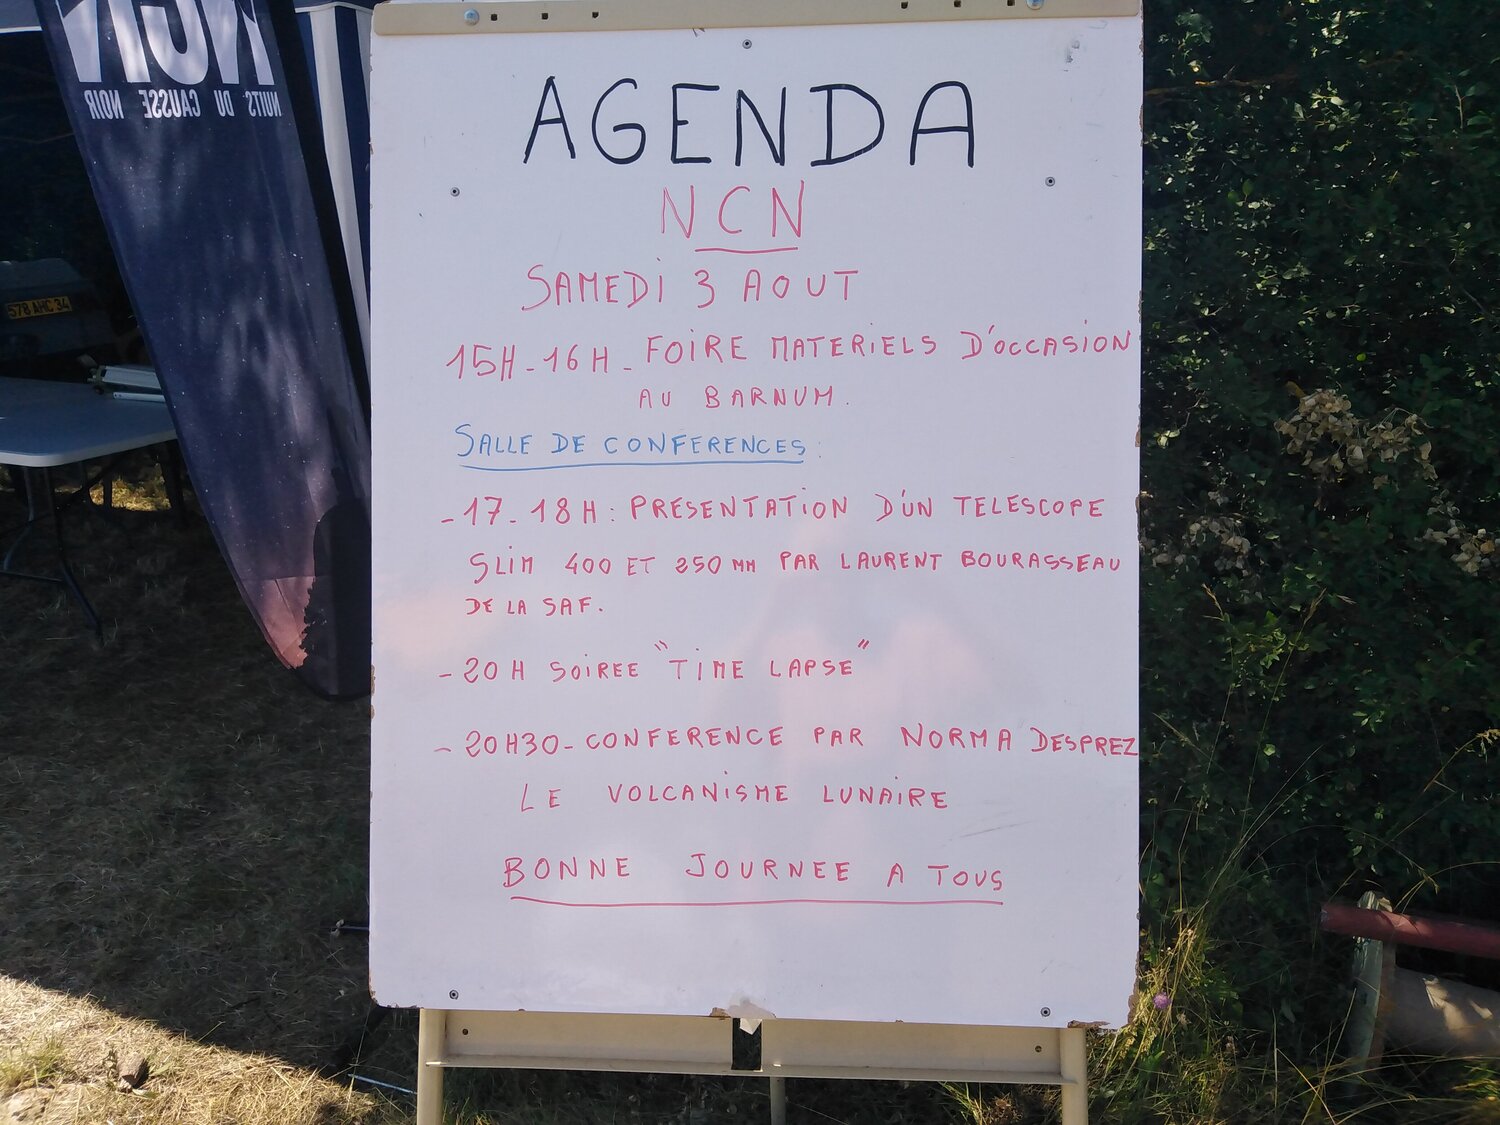 NCN
NUITS DU CAUSSE NOIR
578 AHC 34
AGENDA
NCN
SAMEDI 3 AOUT
15H-16H-FOIRE MATERIELS D'OCCASION
AU BARNUM.
SALLE DE CONFERENCES:
-17-18H: PRESENTATION D'UN TELESCOPE
SLIM 400 ET 250 MM PAR LAURENT BOURASSEAU
DE LA SAF.
-20H SOIREE "TIME LAPSE"
-20H30-CONFERENCE PAR NORMA DESPREZ
LE VOLCANISME LUNAIRE
BONNE JOURNEE A TOUS